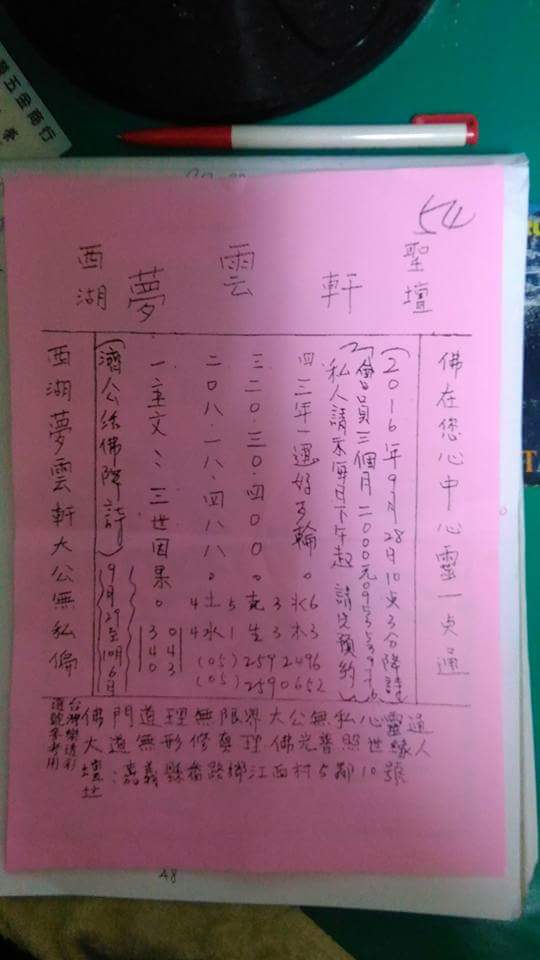 五金商行
54
西湖夢雲軒聖壇
佛在您心中心靈一点通
(2016年9月28日10点3分降詩)
會員三個月二000元
私人請示每日下午起 請先預約
四三年一運好可輪。水6 3木3 2496 0652
三二0.三0.四00。克 3生4 259 259
二0八.一八.四八八。土5 水1 (05) (05)
一主文:三世因果。4 4 043 340
(濟公活佛降詩) 9月29至10月6日
西湖夢雲軒大公無私偏
佛門道理無限界大公無私心靈通
大道無形修真理佛光普照世緣人
壇址:嘉義縣番路鄉江西村5鄰10號
台灣樂透彩
選號參考用
48